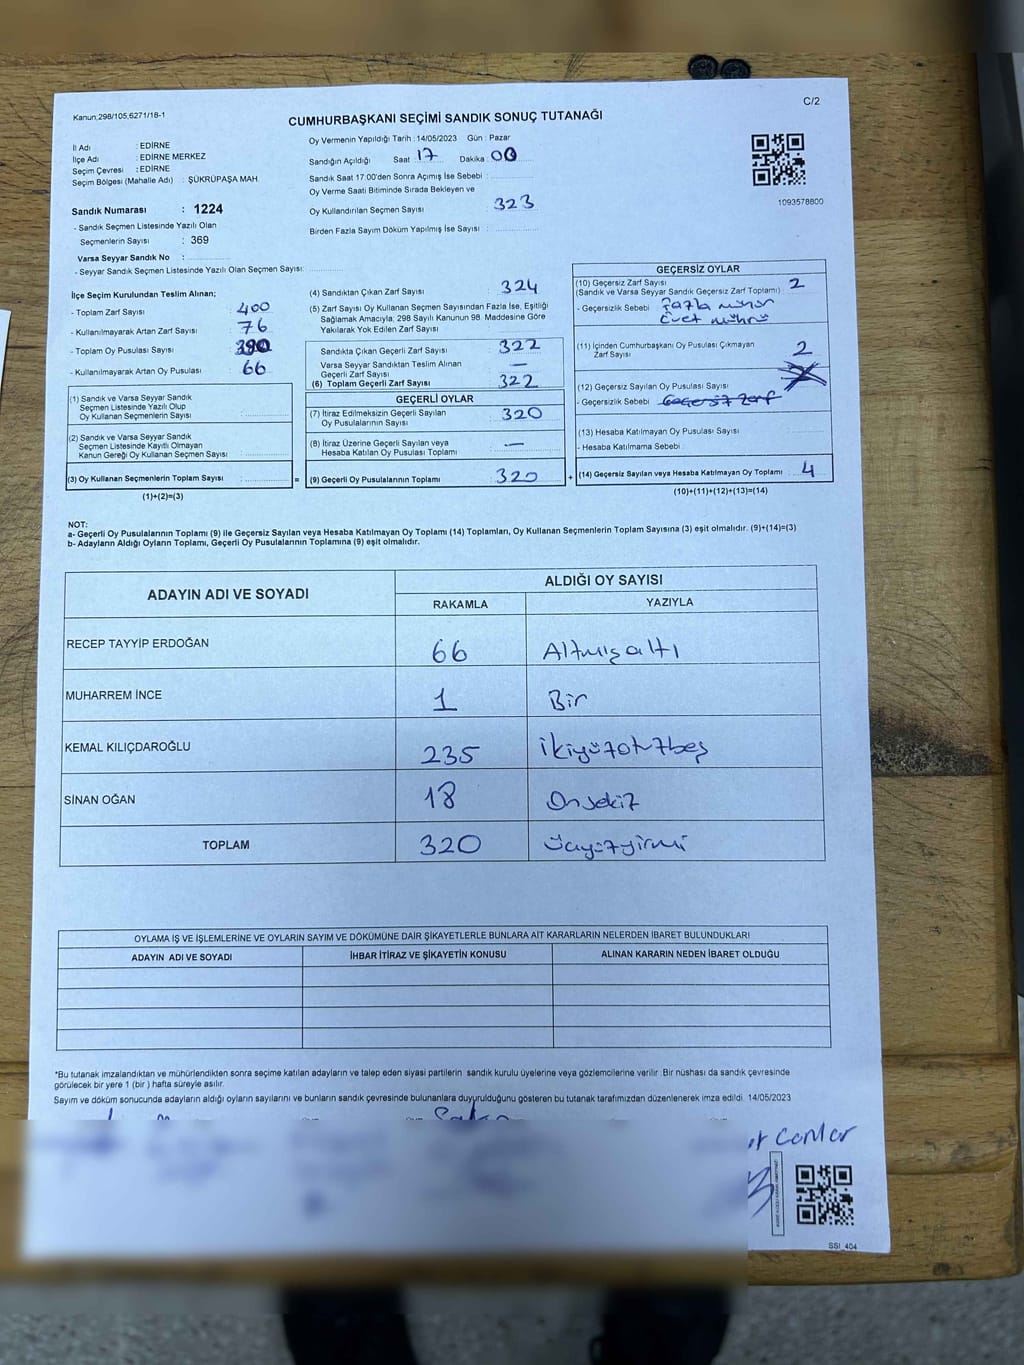 C/2
Kanun;298/105,6271/18-1
CUMHURBAŞKANI SEÇİMİ SANDIK SONUÇ TUTANAĞI
İl Adı : EDİRNE
İlçe Adı : EDİRNE MERKEZ
Seçim Çevresi : EDİRNE
Seçim Bölgesi (Mahalle Adı) : ŞÜKRÜPAŞA MAH.
Sandık Numarası : 1224
- Sandık Seçmen Listesinde Yazılı Olan
Seçmenlerin Sayısı : 369
Varsa Seyyar Sandık No :
- Seyyar Sandık Seçmen Listesinde Yazılı Olan Seçmen Sayısı:
Oy Vermenin Yapıldığı Tarih : 14/05/2023 Gün : Pazar
Sandığın Açıldığı Saat 17 Dakika : 00
Sandık Saat 17:00'den Sonra Açımış İse Sebebi :
Oy Verme Saati Bitiminde Sırada Bekleyen ve
Oy Kullandırılan Seçmen Sayısı : 323
Birden Fazla Sayım Döküm Yapılmış İse Sayısı :
1093578800
İlçe Seçim Kurulundan Teslim Alınan;
- Toplam Zarf Sayısı : 400
- Kullanılmayarak Artan Zarf Sayısı : 76
- Toplam Oy Pusulası Sayısı : 390
- Kullanılmayarak Artan Oy Pusulası : 66
(1) Sandık ve Varsa Seyyar Sandık
Seçmen Listesinde Yazılı Olup
Oy Kullanan Seçmenlerin Sayısı :
(2) Sandık ve Varsa Seyyar Sandık
Seçmen Listesinde Kayıtlı Olmayan
Kanun Gereği Oy Kullanan Seçmen Sayısı :
(3) Oy Kullanan Seçmenlerin Toplam Sayısı :
(1)+(2)=(3)
=
(4) Sandıktan Çıkan Zarf Sayısı : 324
(5) Zarf Sayısı Oy Kullanan Seçmen Sayısından Fazla İse, Eşitliği
Sağlamak Amacıyla, 298 Sayılı Kanunun 98. Maddesine Göre
Yakılarak Yok Edilen Zarf Sayısı :
Sandıkta Çıkan Geçerli Zarf Sayısı : 322
Varsa Seyyar Sandıktan Teslim Alınan
Geçerli Zarf Sayısı : —
(6) Toplam Geçerli Zarf Sayısı : 322
GEÇERLİ OYLAR
(7) İtiraz Edilmeksizin Geçerli Sayılan
Oy Pusulalarının Sayısı : 320
(8) İtiraz Üzerine Geçerli Sayılan veya
Hesaba Katılan Oy Pusulası Toplamı : —
(9) Geçerli Oy Pusulalarının Toplamı : 320
+
GEÇERSİZ OYLAR
(10) Geçersiz Zarf Sayısı
(Sandık ve Varsa Seyyar Sandık Geçersiz Zarf Toplamı) : 2
- Geçersizlik Sebebi : fazla mühür
Evet mührü
(11) İçinden Cumhurbaşkanı Oy Pusulası Çıkmayan
Zarf Sayısı : 2
(12) Geçersiz Sayılan Oy Pusulası Sayısı :
- Geçersizlik Sebebi : Geçersiz Zarf
(13) Hesaba Katılmayan Oy Pusulası Sayısı :
- Hesaba Katılmama Sebebi :
(14) Geçersiz Sayılan veya Hesaba Katılmayan Oy Toplamı : 4
(10)+(11)+(12)+(13)=(14)
NOT:
a- Geçerli Oy Pusulalarının Toplamı (9) ile Geçersiz Sayılan veya Hesaba Katılmayan Oy Toplamı (14) Toplamları, Oy Kullanan Seçmenlerin Toplam Sayısına (3) eşit olmalıdır. (9)+(14)=(3)
b- Adayların Aldığı Oyların Toplamı, Geçerli Oy Pusulalarının Toplamına (9) eşit olmalıdır.
ADAYIN ADI VE SOYADI ALDIĞI OY SAYISI
RAKAMLA YAZIYLA
RECEP TAYYİP ERDOĞAN 66 Altmışaltı
MUHARREM İNCE 1 Bir
KEMAL KILIÇDAROĞLU 235 ikiyüzotuzbeş
SİNAN OĞAN 18 Onsekiz
TOPLAM 320 üçyüzyirmi
OYLAMA İŞ VE İŞLEMLERİNE VE OYLARIN SAYIM VE DÖKÜMÜNE DAİR ŞİKAYETLERLE BUNLARA AİT KARARLARIN NELERDEN İBARET BULUNDUKLARI
ADAYIN ADI VE SOYADI İHBAR İTİRAZ VE ŞİKAYETİN KONUSU ALINAN KARARIN NEDEN İBARET OLDUĞU
*Bu tutanak imzalandıktan ve mühürlendikten sonra seçime katılan adayların ve talep eden siyasi partilerin sandık kurulu üyelerine veya gözlemcilerine verilir .Bir nüshası da sandık çevresinde
görülecek bir yere 1 (bir ) hafta süreyle asılır.
Sayım ve döküm sonucunda adayların aldığı oyların sayılarını ve bunların sandık çevresinde bulunanlara duyurulduğunu gösteren bu tutanak tarafımızdan düzenlenerek imza edildi. 14/05/2023
SSI_404